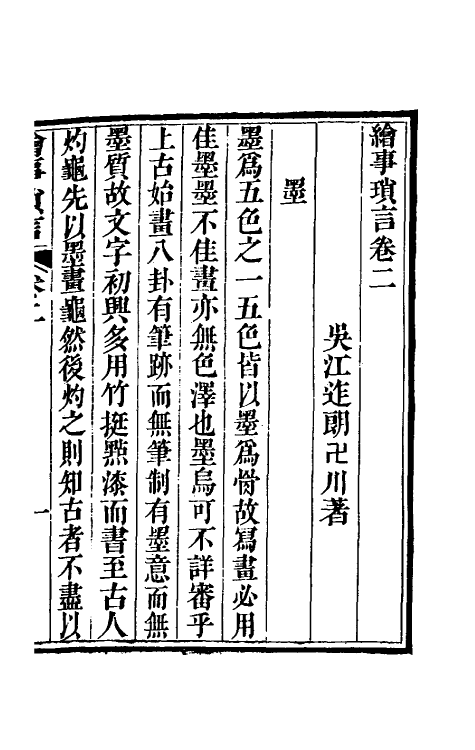 繪事瑣言卷二
吳江迮朗卍川著
墨
墨爲五色之一五色皆以墨爲骨故寫畫必用
佳墨墨不佳畫亦無色澤也墨烏可不詳審乎
上古始畫八卦有筆跡而無筆制有墨意而無
墨質故文字初興多用竹挺㸃漆而書至古人
灼龜先以墨畫龜然後灼之則知古者不盡以
繪事瑣言 卷二 一